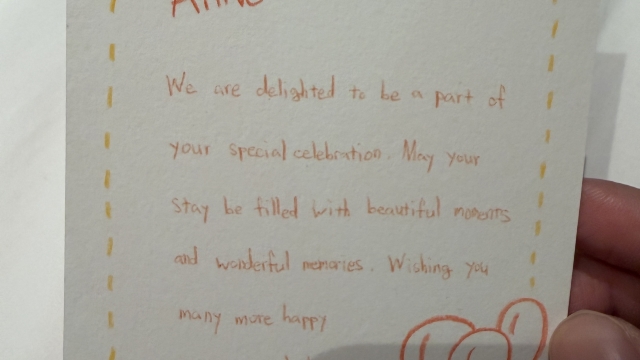 We are delighted to be a part of
your special celebration. May your
stay be filled with beautiful moments
and wonderful memories. Wishing you
many more happy